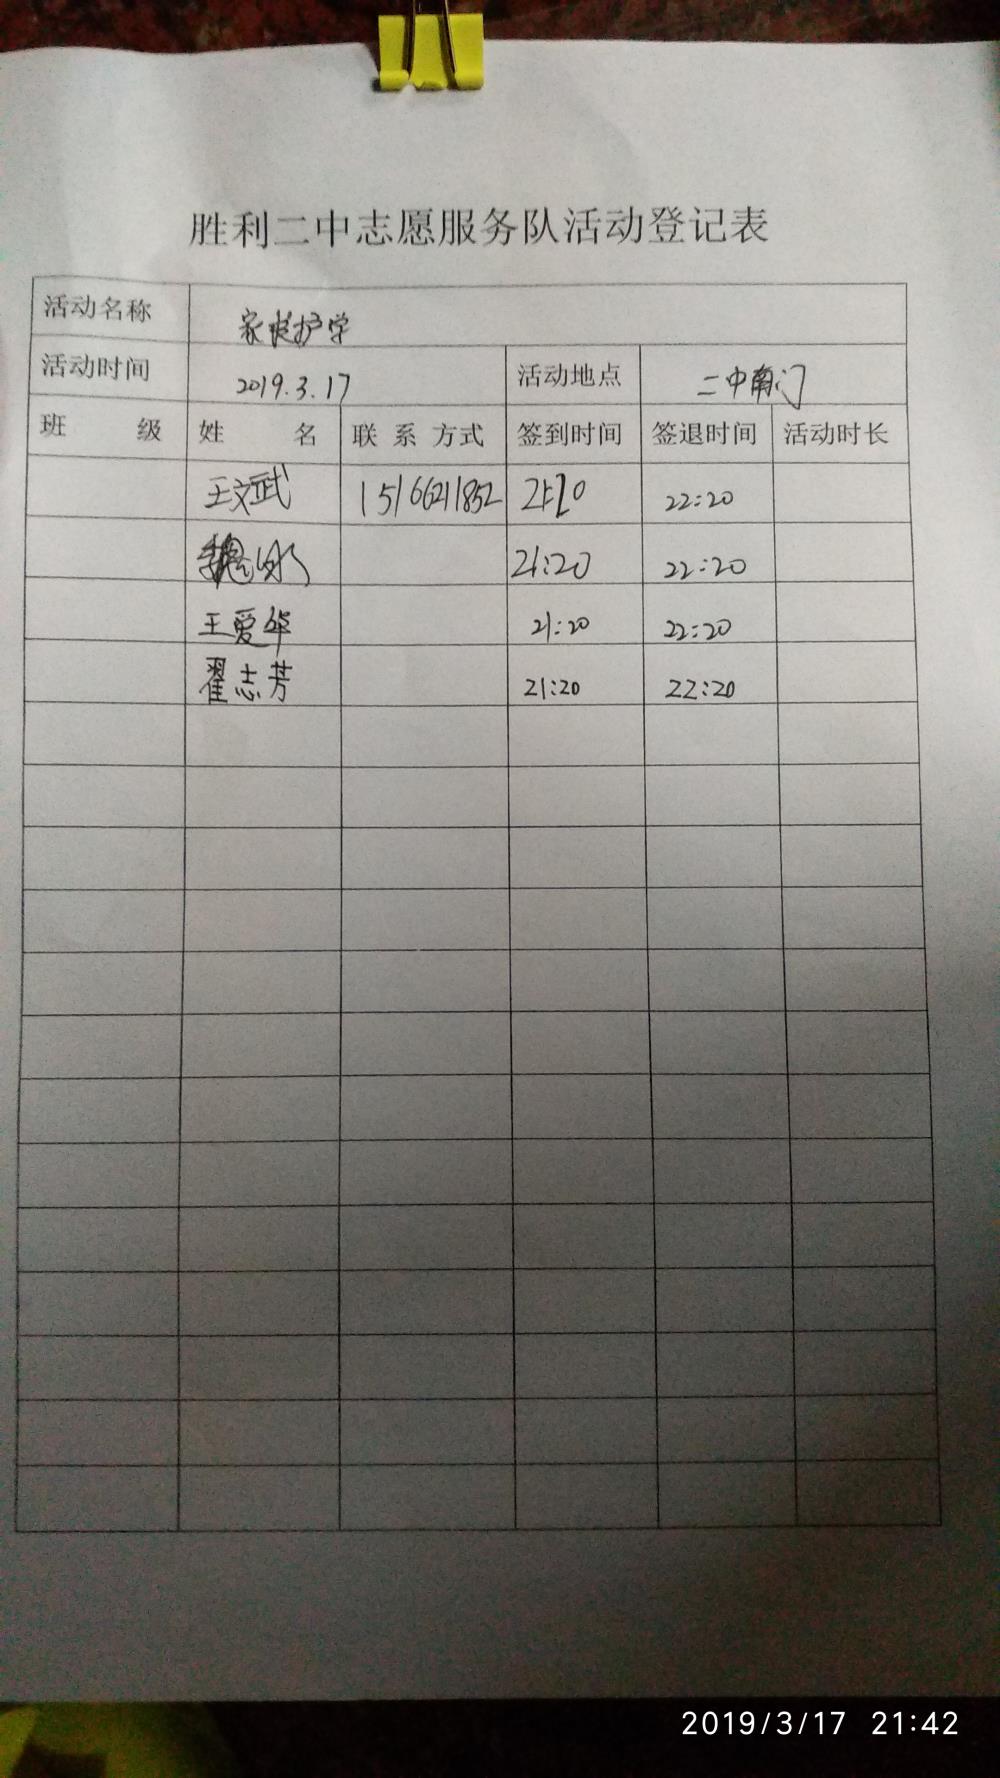 胜利二中志愿服务队活动登记表
活动名称 家长护学
活动时间 2019.3.17 活动地点 二中南门
班 级 姓 名 联 系 方式 签到时间 签退时间 活动时长
王文武 15166211852 22:20
21:20 22:20
王爱华 21:20 22:20
翟志芳 21:20 22:20
2019/3/17 21:42